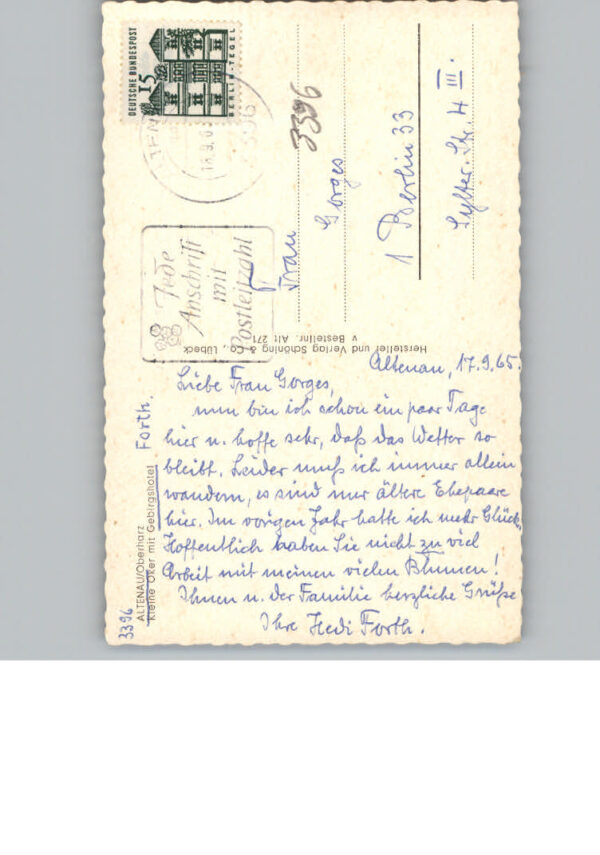 DEUTSCHE BUNDESPOST
15
BERLIN-TEGEL
3396
Jede
Anschrift
mit
Postleitzahl
3396
Frau
Gorges
1 Berlin 33
Sylter. Str. 4 III.
Hersteller und Verlag Schöning & Co., Lübeck
v Bestellnr. Alt 271
Altenau, 17.9.65.
Liebe Frau Gorges,
nun bin ich schon ein paar Tage
hier u. hoffe sehr, daß das Wetter so
bleibt. Leider muß ich immer allein
wandern, es sind nur ältere Ehepaare
hier. Im vorigen Jahr hatte ich mehr Glück.
Hoffentlich haben Sie nicht zu viel
Arbeit mit meinen vielen Blumen!
Ihnen u. der Familie herzliche Grüße
Ihre Hedi Forth.
Forth.
3396
ALTENAU/Oberharz
Kleine Oker mit Gebirgshotel